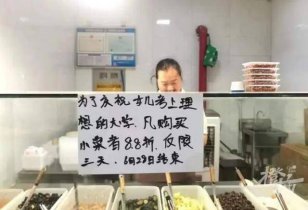 为了庆祝女儿考上理
想的大学,凡购买
小菜者8.8折,仅限
三天,6月28日结束